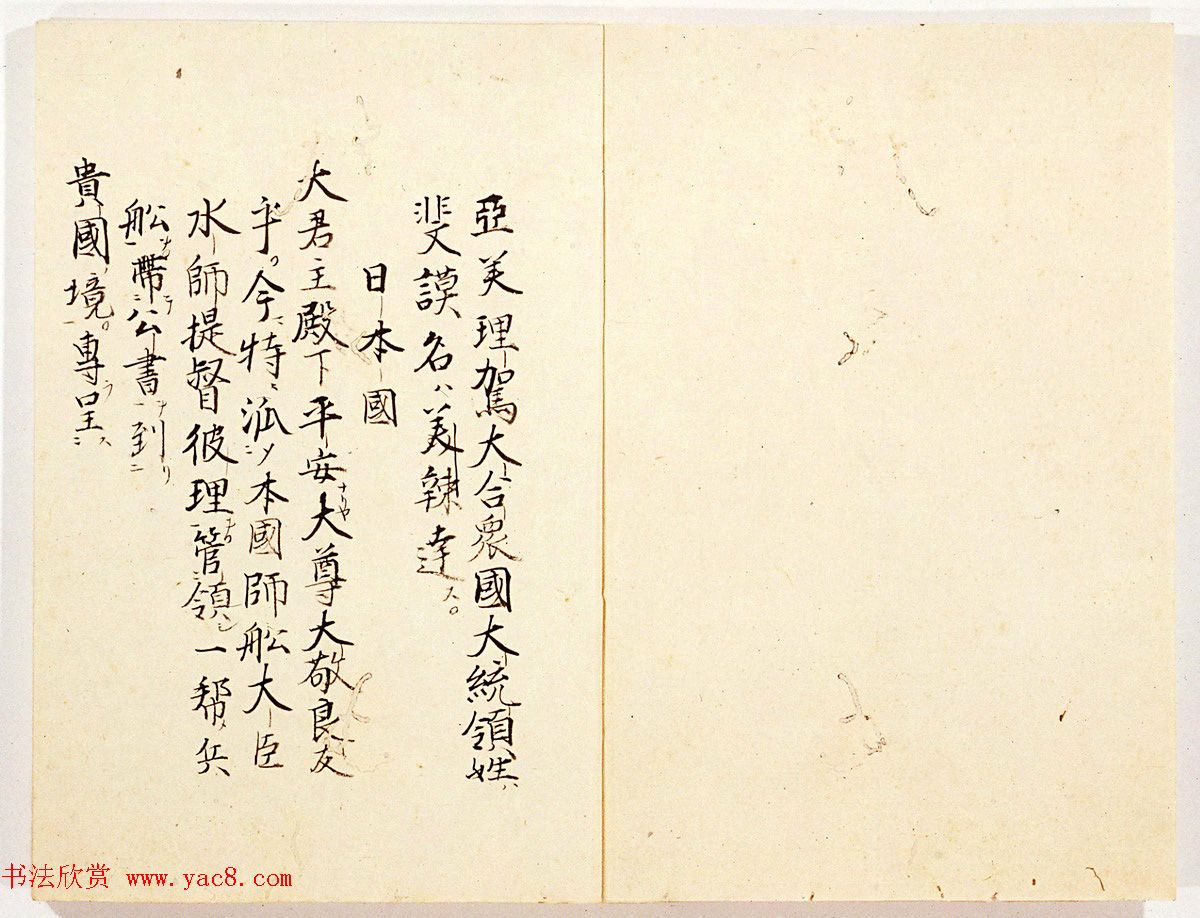 亞美理駕大合衆國大統領姓ハ
斐謨名ハ美辣達ス。
日本國
大君主殿下平安ナリヤ大尊大敬良友
乎。今特ニ泒シメ本國師舩大臣
水師提督彼理管領シ一幫兵
舩帶公書到リ
貴國境。專呈ス
书法欣赏 www.yac8.com